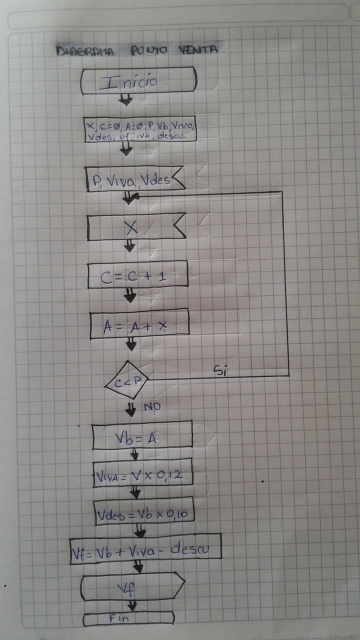 DIAGRAMA PUNTO VENTA.
Inicio
X, C=0, A=0, P, Vb, Viva,
Vdes, vf, IVA, descu.
P, Viva, Vdes
X
C = C + 1
A = A + X
C < P
Si
NO
Vb = A
VIVA = V x 0,12
Vdes = Vb x 0,10
Vf = Vb + Viva - descu
Vf
Fin